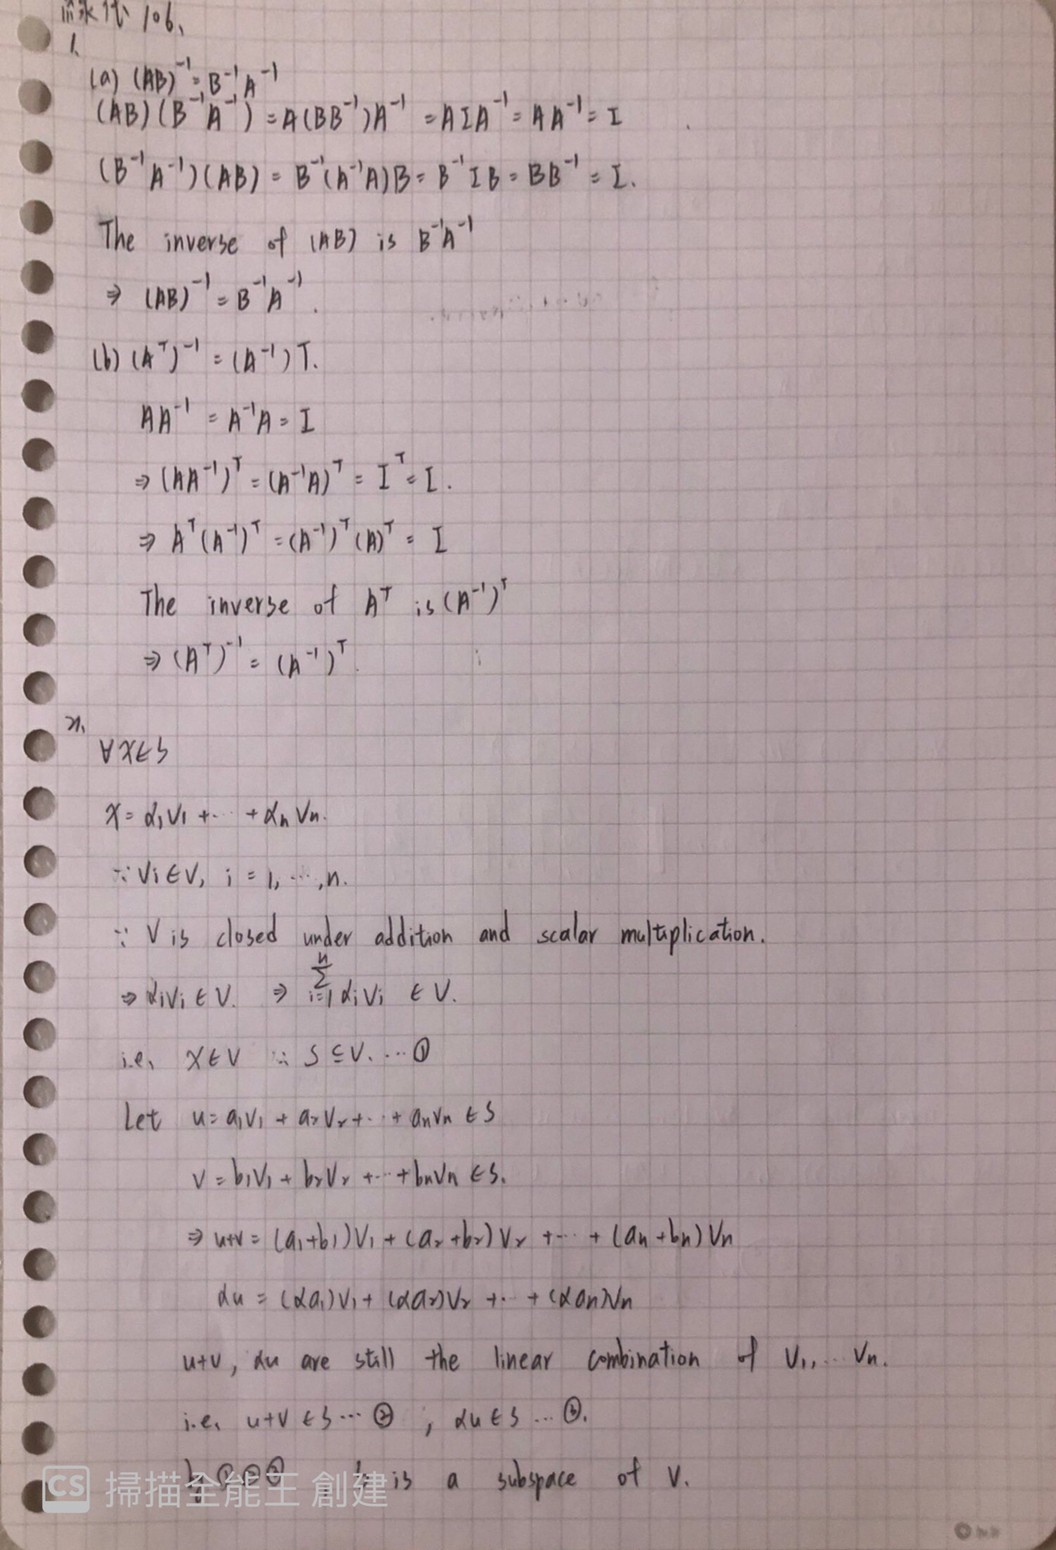 線代 106、
1.
(a) (AB)⁻¹ = B⁻¹A⁻¹
(AB)(B⁻¹A⁻¹) = A(BB⁻¹)A⁻¹ = AIA⁻¹ = AA⁻¹ = I
(B⁻¹A⁻¹)(AB) = B⁻¹(A⁻¹A)B = B⁻¹IB = BB⁻¹ = I.
The inverse of (AB) is B⁻¹A⁻¹
⇒ (AB)⁻¹ = B⁻¹A⁻¹.
(b) (Aᵀ)⁻¹ = (A⁻¹)T.
AA⁻¹ = A⁻¹A = I
⇒ (AA⁻¹)ᵀ = (A⁻¹A)ᵀ = Iᵀ = I.
⇒ Aᵀ(A⁻¹)ᵀ = (A⁻¹)ᵀ(A)ᵀ = I
The inverse of Aᵀ is (A⁻¹)ᵀ
⇒ (Aᵀ)⁻¹ = (A⁻¹)ᵀ.
2.
∀x∈S
x = α₁v₁ + ⋯ + αₙvₙ.
∵ vi∈V, i = 1, ⋯, n.
∵ V is closed under addition and scalar multiplication.
⇒ αivi ∈ V. ⇒ ∑ⁿᵢ₌₁ αivi ∈ V.
i.e. x∈V ∴ S ⊆ V. ⋯①
Let u = a₁v₁ + a₂v₂ + ⋯ + aₙvₙ ∈ S
v = b₁v₁ + b₂v₂ + ⋯ + bₙvₙ ∈ S.
⇒ u+v = (a₁+b₁)v₁ + (a₂+b₂)v₂ + ⋯ + (aₙ+bₙ)vₙ
αu = (αa₁)v₁ + (αa₂)v₂ + ⋯ + (αaₙ)vₙ
u+v, αu are still the linear combination of v₁, ⋯ vₙ.
i.e. u+v ∈ S ⋯ ② , αu ∈ S ⋯ ③.
by ①②③ , S is a subspace of V.
CS 掃描全能王 創建